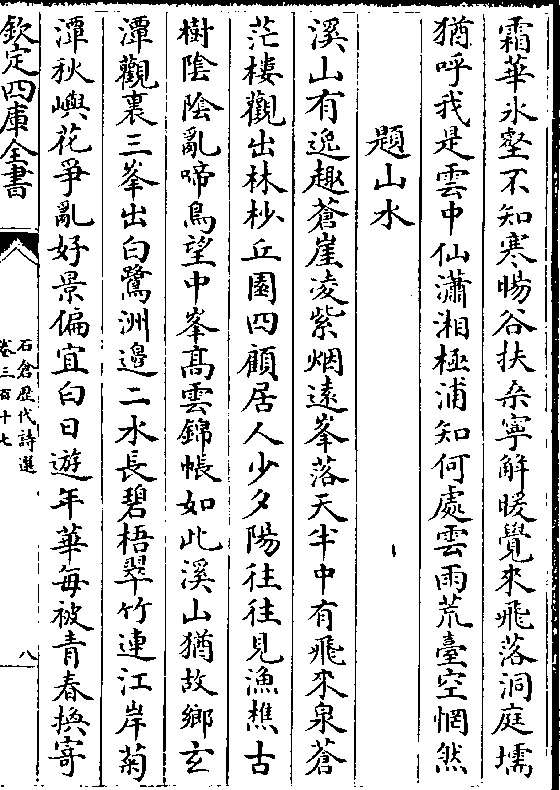 霜華氷壑不知寒暘谷扶桑寧解暖覺來飛落洞庭壖
猶呼我是雲中仙瀟湘極浦知何處雲雨荒臺空惘然
題山水
溪山有逸趣蒼崖凌紫烟遠峯落天半中有飛來泉蒼
茫樓觀出林杪丘園四顧居人少夕陽往往見漁樵古
樹陰陰亂啼鳥望中峯髙雲錦帳如此溪山猶故鄉玄
潭觀裏三峯出白鷺洲邉二水長碧梧翠竹連江岸菊
潭秋嶼花爭亂好景偏宜白日遊年華每被青春換寄
欽定四庫全書
石倉歴代詩選
卷三百十七
八